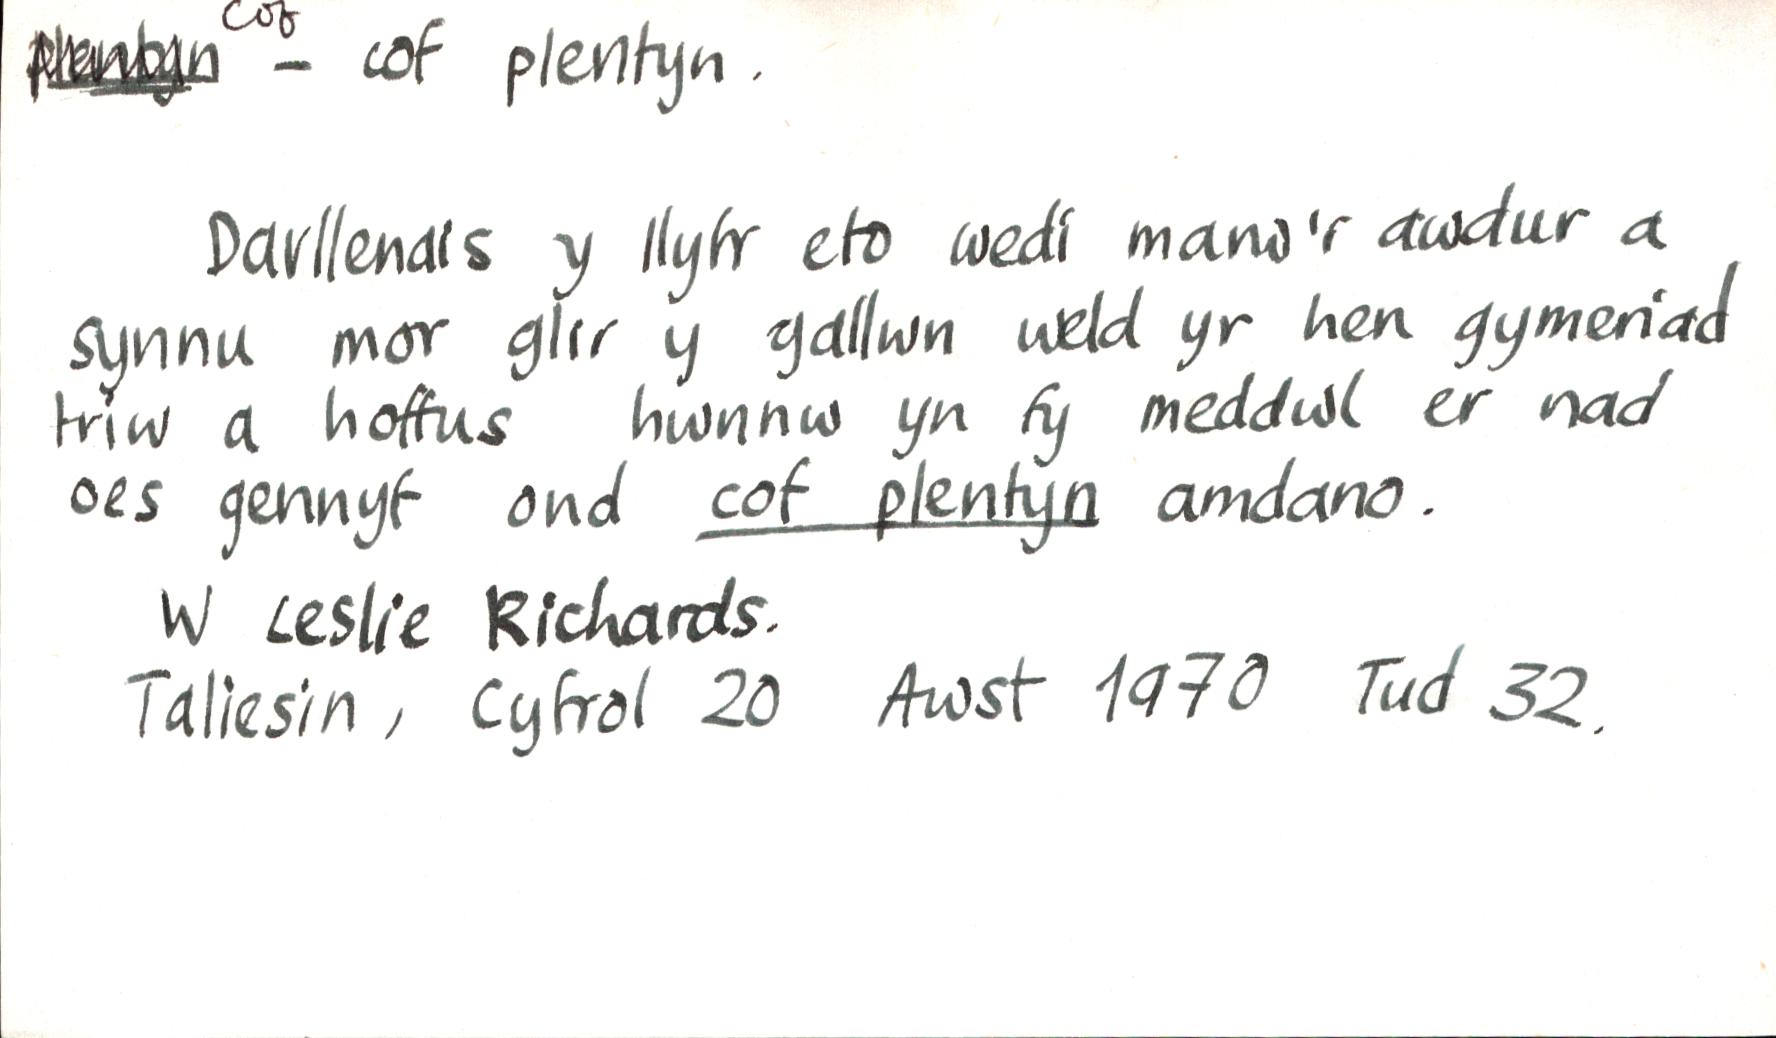 cof
plentyn - cof plentyn.
Darllenais y llyfr eto wedi marw'r awdur a
synnu mor glir y gallwn weld yr hen gymeriad
triw a hoffus hwnnw yn fy meddwl er nad
oes gennyf ond cof plentyn amdano.
W Leslie Richards.
Taliesin, Cyfrol 20 Awst 1970 Tud 32.